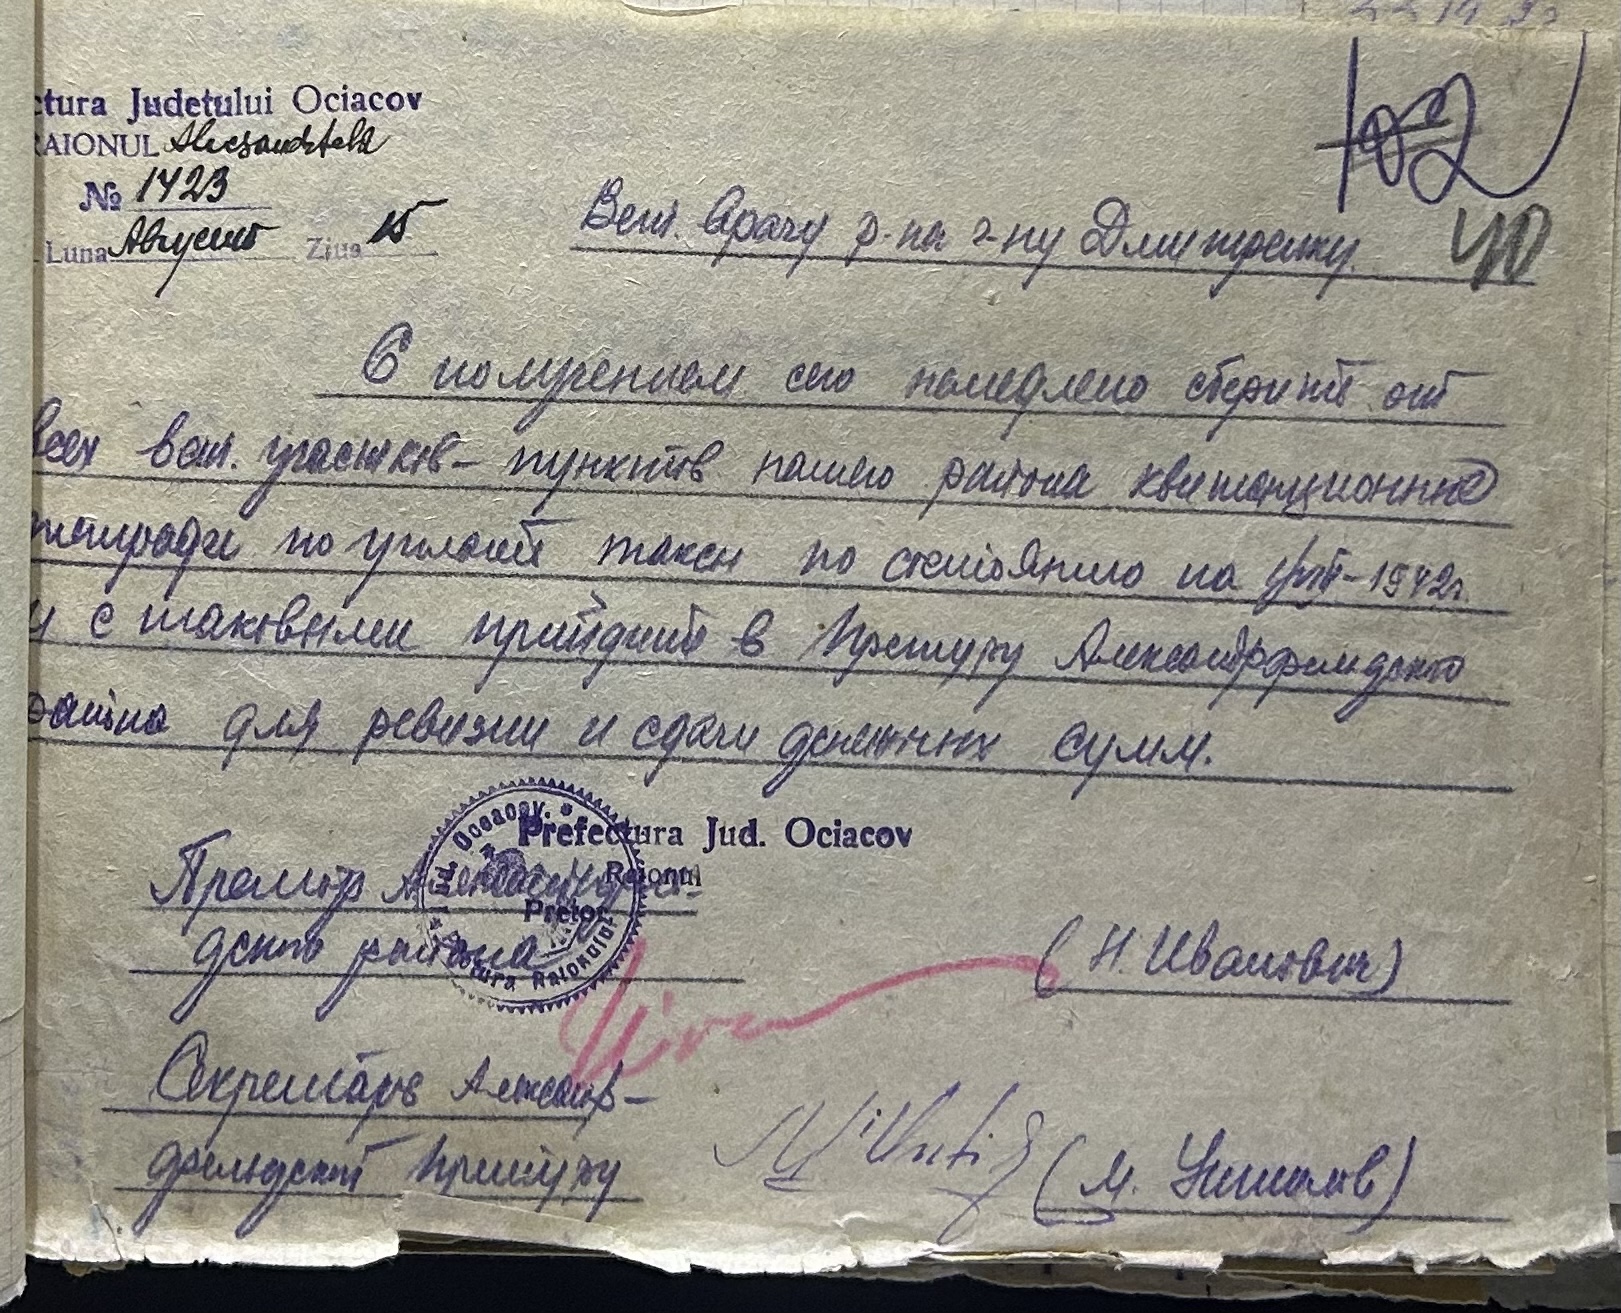 ctura Judetului Ociacov
RAIONUL Alecsandrfeld
№ 1423
Luna Август Ziua 15
102
40
Вет. врачу р-на г-ну Дмитренку.
С получением сего немедлено сберите от
всех вет. участков-пунктов нашего района квитанционные
тетради по уплате таксы по состоянию на 1942г.
и с таковыми прийдите в Претуру Александрфельдского
района для ревизии и сдачи денежных сумм.
Prefectura Jud. Ociacov
Raionul
Pretor
Претор Александрфель-
дского района
(Н. Иванович)
Секретарь Александр-
фельдской Претуры
(М.